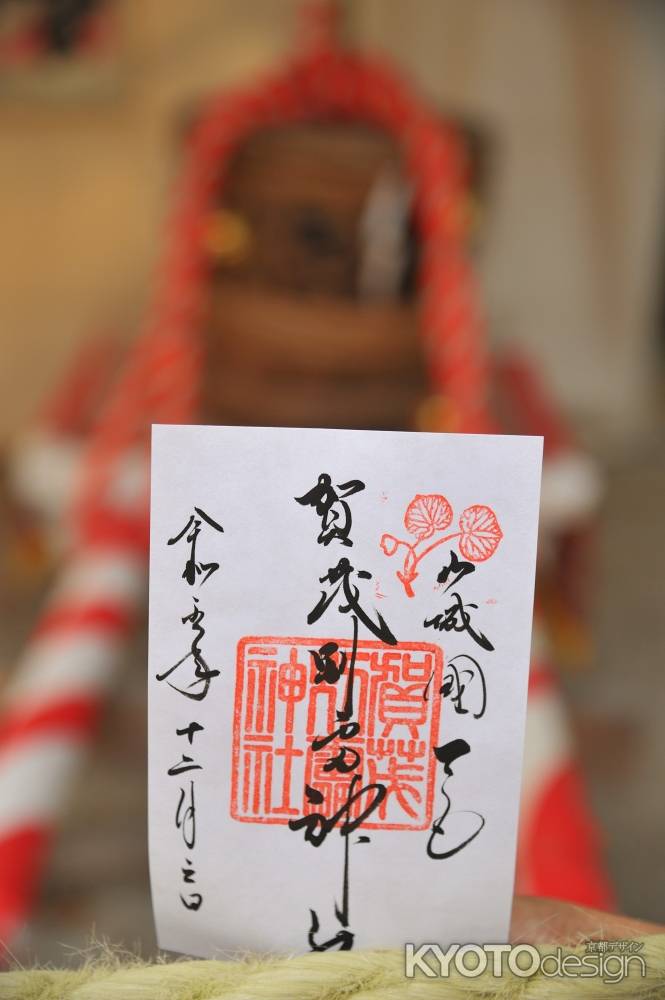 山城國一宮
賀茂別雷神社
令和 年十二月 日
賀茂
別雷
神社
京都デザイン
KYOTOdesign